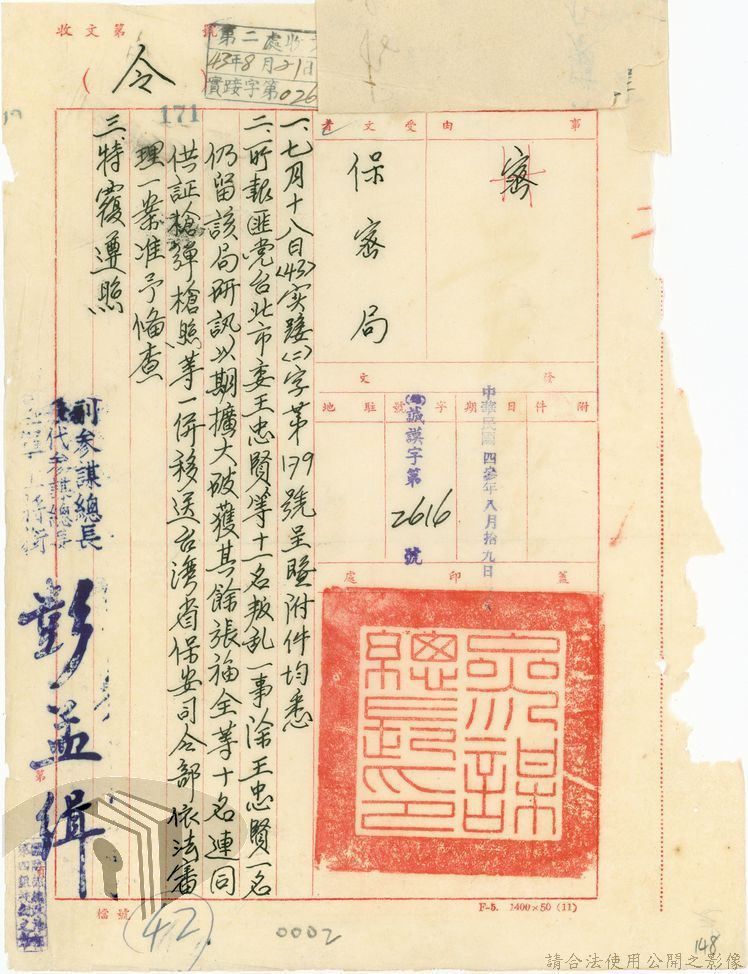 收文 第 號
第二處收文
43年8月21日
實踐字第026
(令)
171
事由
密
受文者
保密局
發文
附件
日期
字號
駐地
中華民國四參年八月拾九日
誠謨字第2616號
蓋印處
參謀總長印
一、七月十八日(43)實踐(二)字第179號呈暨附件均悉
二、所報匪党台北市委王忠賢等十一名叛乱一事除王忠賢一名
仍留該局研訊以期擴大破獲其餘張福全等十名連同
供証槍彈槍照等一併移送台灣省保安司令部依法審
理一案准予俻查
三、特覆遵照
副參謀總長
代參謀總長
彭孟緝
第
檔號
42
0002
F-5. 1400×50 (11)
148
請合法使用公開之影像